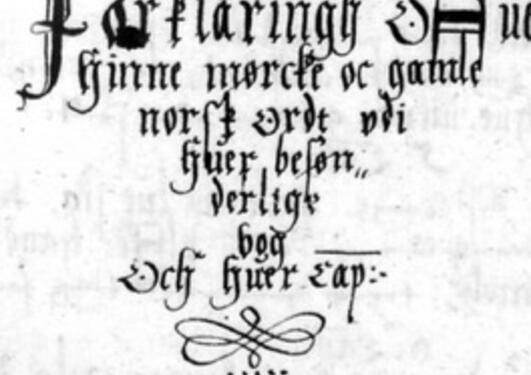 Forklaringh Offu
hinne mørcke oc gamle
norsk Ordt vdi
huer besøn„
derlige
bog
Och huer Cap:-